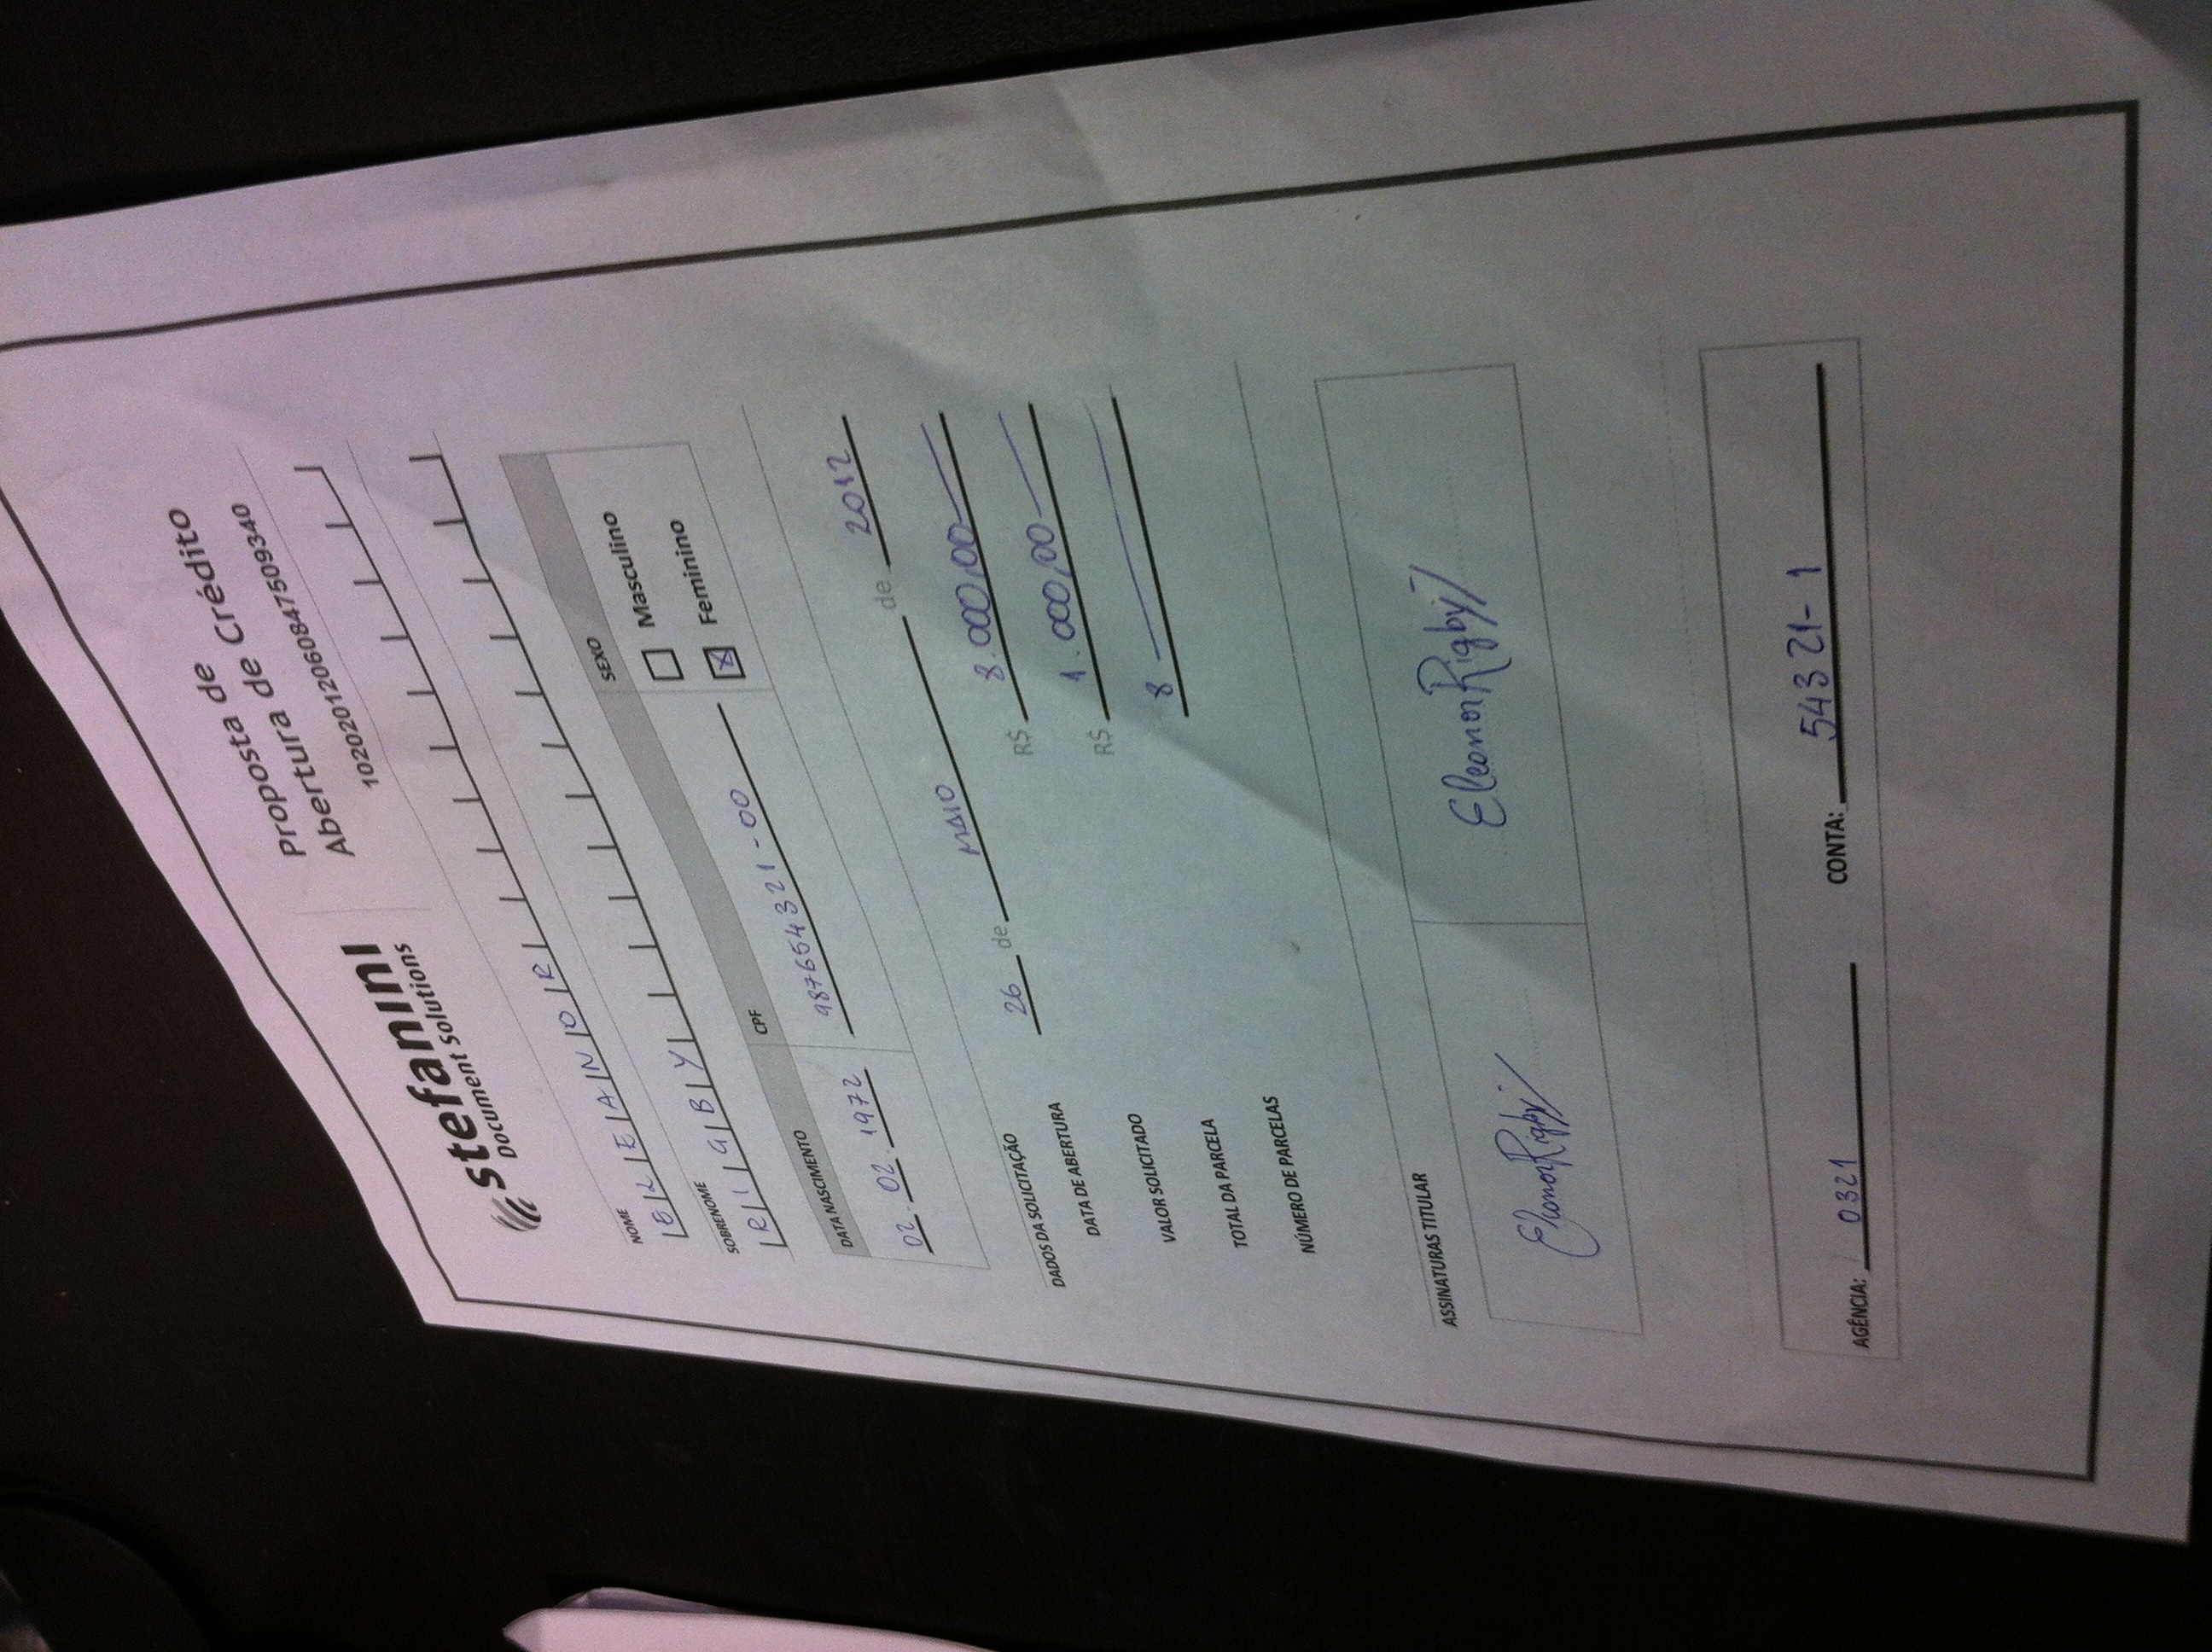 stefanini
Document Solutions
Proposta de
Abertura de Crédito
10202012060847509340
NOME
ELEANOR
SOBRENOME
RIGBY
DATA NASCIMENTO CPF SEXO
02.02.1972 987654321-00
Masculino
X Feminino
DADOS DA SOLICITAÇÃO
DATA DE ABERTURA 26 de MAIO de 2012
VALOR SOLICITADO R$ 8.000,00
TOTAL DA PARCELA R$ 1.000,00
NÚMERO DE PARCELAS 8
ASSINATURAS TITULAR
Eleanor Rigby Eleanor Rigby
AGÊNCIA: 0321 CONTA: 54321-1